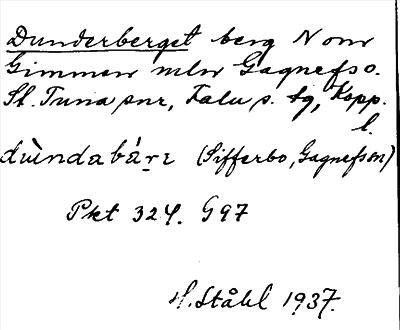 Dunderberget berg N om
Gimmen mln Gagnefs o.
St. Tuna snr, Falu s. tg, Kopp.
l.
dùndabárɪ (Sifferbo, Gagnefssn)
Pkt 324. G97
H. Ståhl 1937.